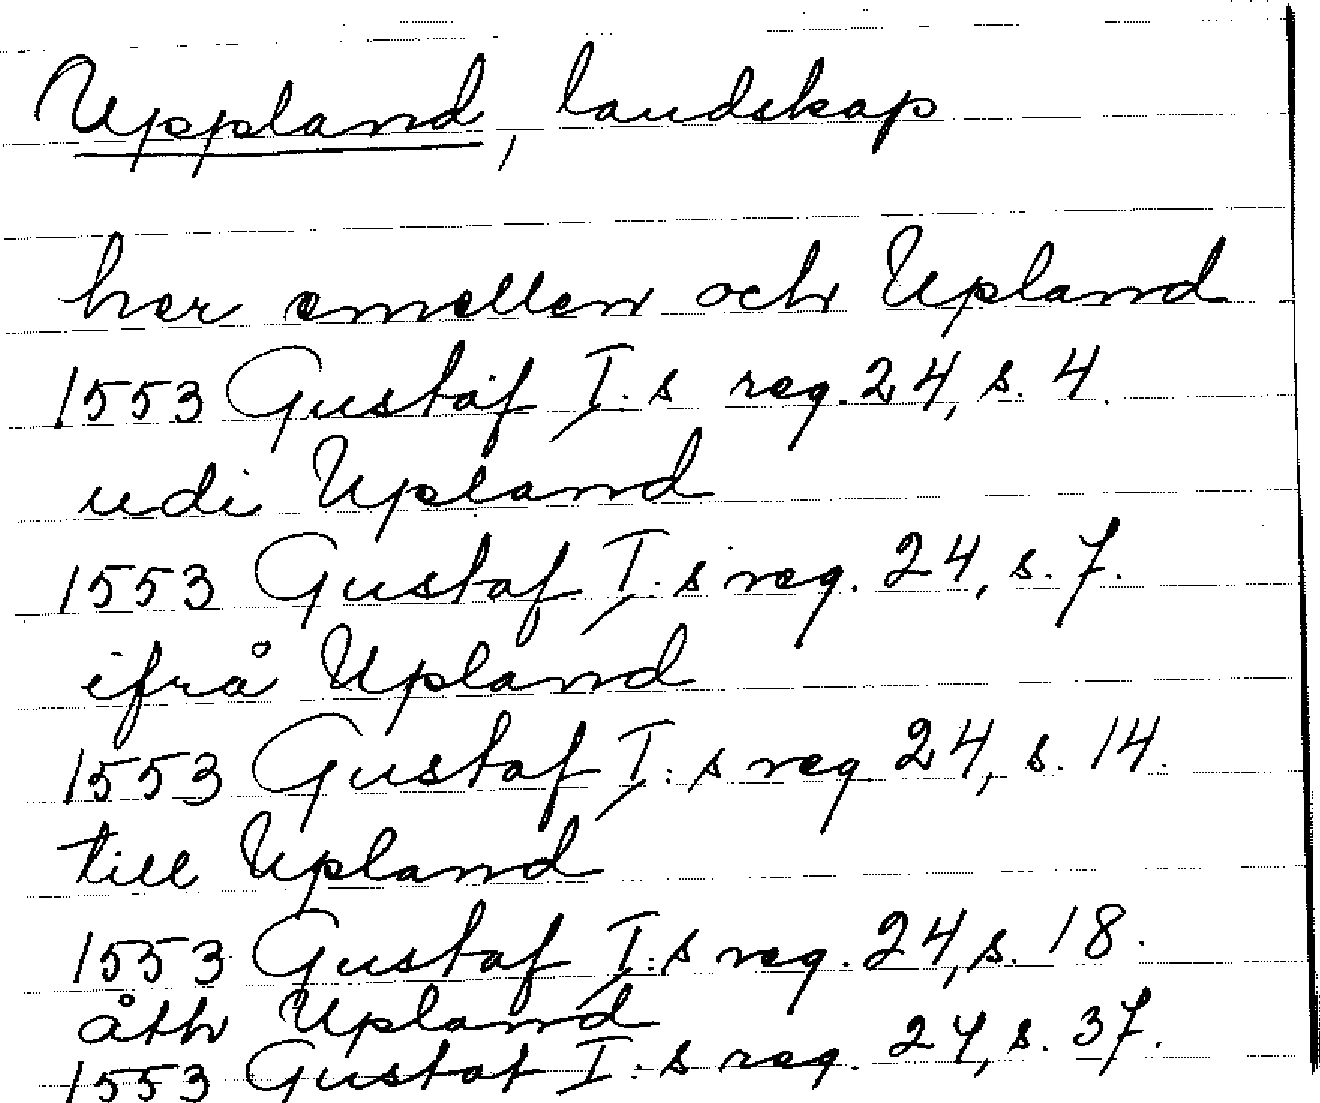 Uppland, landskap
her emellen och Upland
1553 Gustaf I:s reg. 24, s. 4.
udi Upland
1553 Gustaf I:s reg. 24, s. 7.
ifrå Upland
1553 Gustaf I:s reg 24, s. 14.
till Upland
1553 Gustaf I:s reg. 24, s. 18.
åth Upland
1553 Gustaf I:s reg. 24, s. 37.